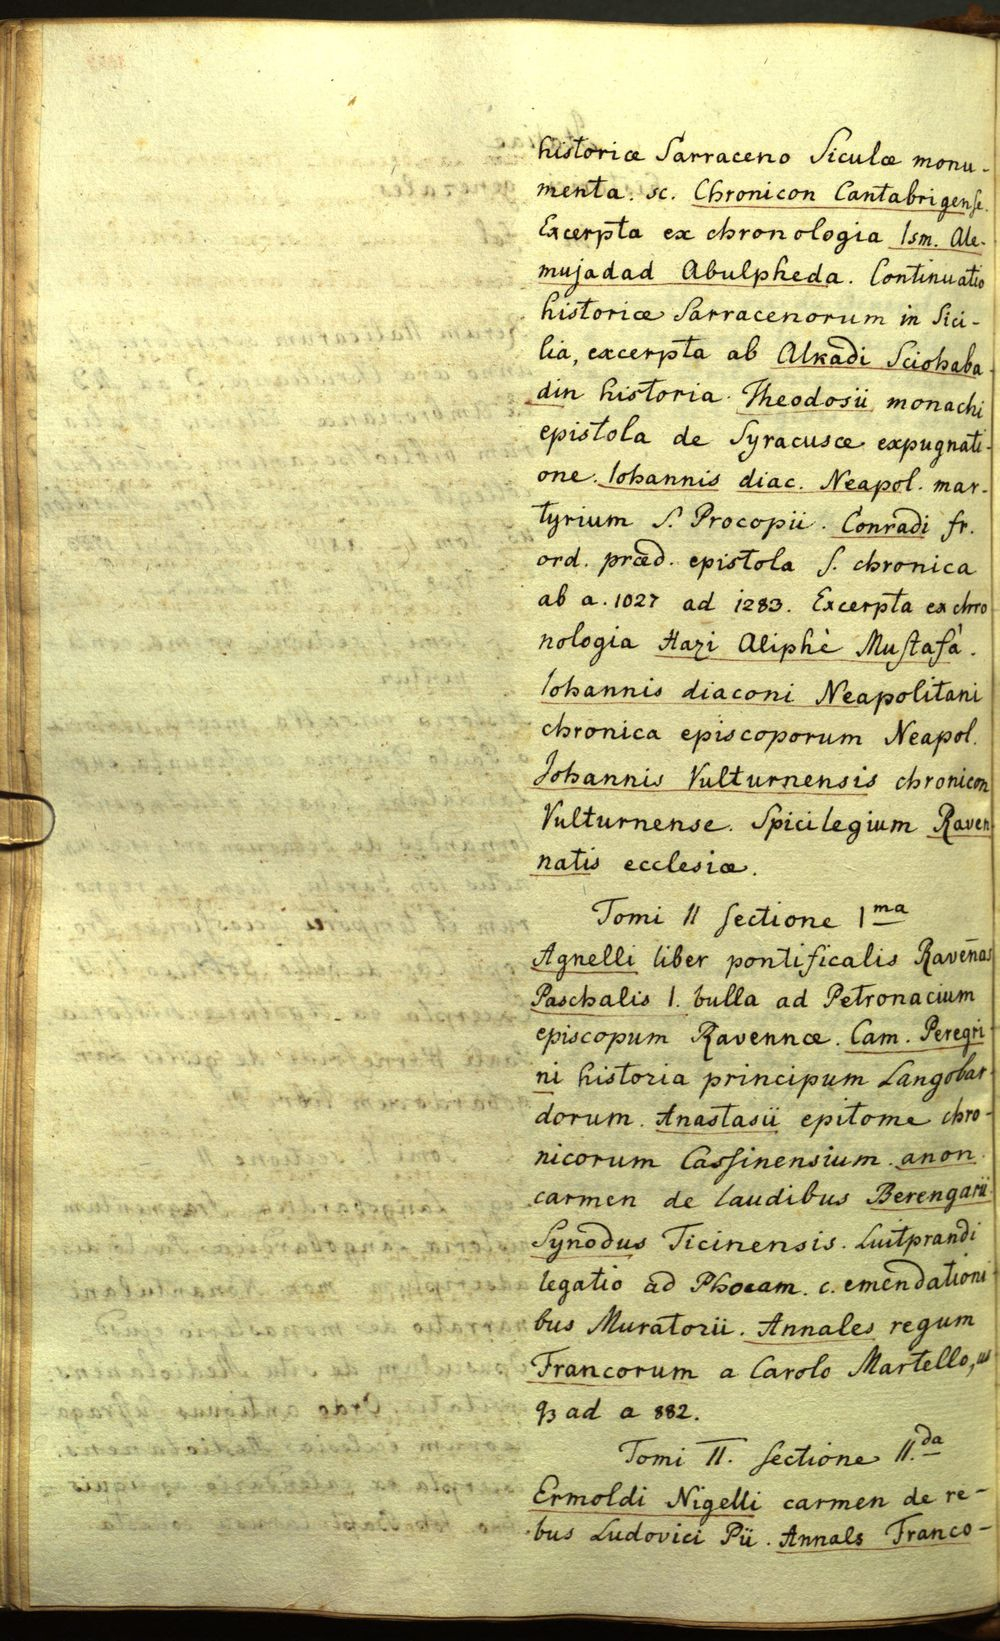 historiæ Sarraceno Siculæ monu-
menta. sc. Chronicon Cantabrigense.
Excerpta ex chronologia Ism. Ale-
mujadad Abulpheda. Continuatio
historiæ Sarracenorum in Sici-
lia, excerpta ab Alkadi Sciohaba-
din historia. Theodosii monachi
epistola de Syracusæ expugnati-
one. Iohannis diac. Neapol. mar-
tyrium S. Procopii. Conradi fr.
ord. præd. epistola s. chronica
ab a. 1027 ad 1283. Excerpta ex chro
nologia Hazi Aliphè Mustafà.
Iohannis diaconi Neapolitani
chronica episcoporum Neapol.
Johannis Vulturnensis chronicon
Vulturnense. Spicilegium Raven-
natis ecclesiæ.
Tomi II sectione I ma
Agnelli liber pontificalis Raveñas
Paschalis I. bulla ad Petronacium
episcopum Ravennæ. Cam. Peregri-
ni historia principum Langobar-
dorum. Anastasii epitome chro-
nicorum Cassinensium. anon.
carmen de laudibus Berengarii.
Synodus Ticinensis. Luitprandi
legatio ad Phocam. c. emendationi-
bus Muratorii. Annales regum
Francorum a Carolo Martello, us
qȝ ad a 882.
Tomi II. sectione II. da
Ermoldi Nigelli carmen de re-
bus Ludovici Pii. Annals Franco-